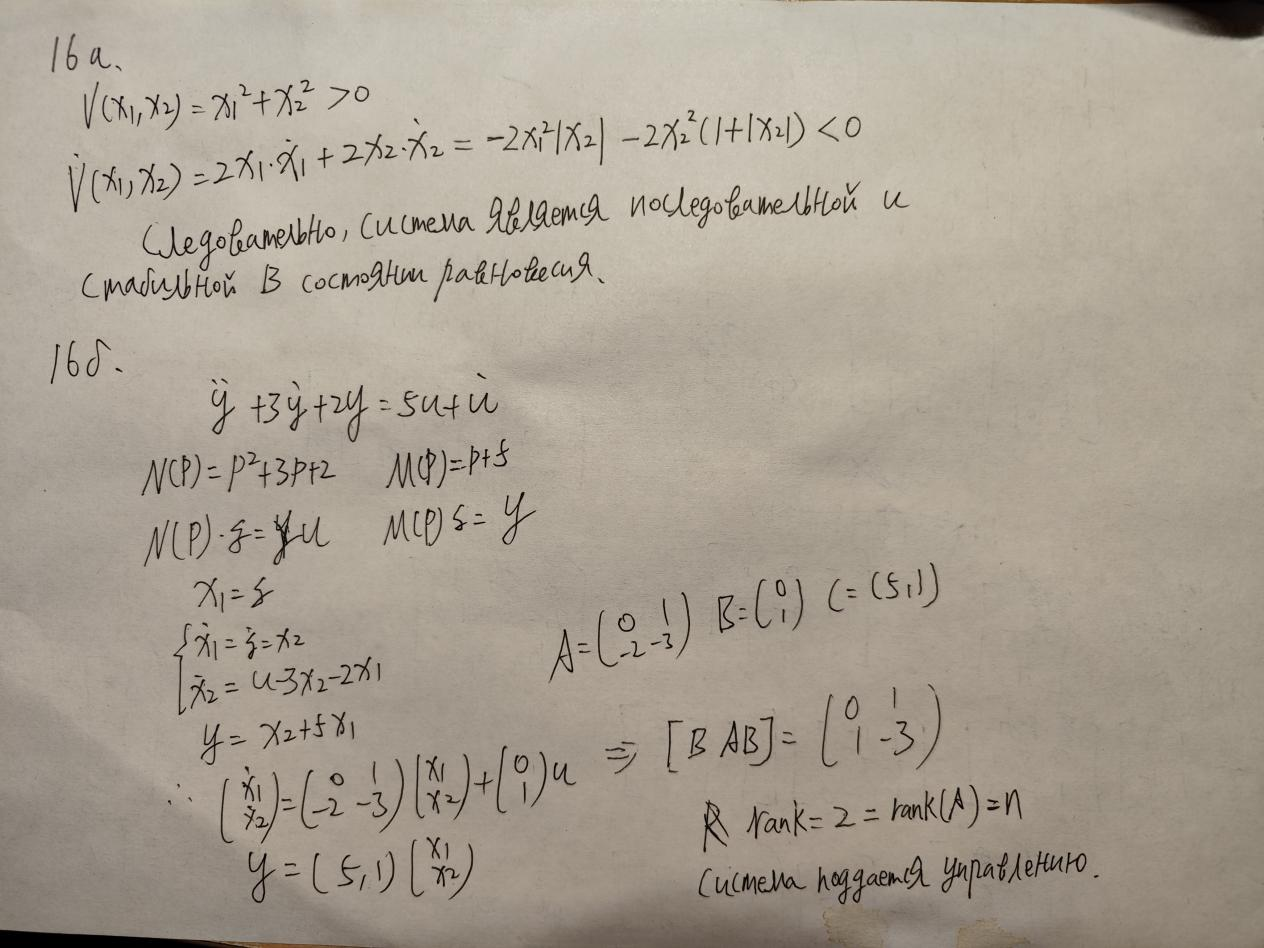 16а.
V(x₁,x₂) = x₁² + x₂² > 0
V̇(x₁,x₂) = 2x₁·ẋ₁ + 2x₂·ẋ₂ = -2x₁²|x₂| - 2x₂²(1+|x₂|) < 0
Следовательно, система является последовательной и
стабильной в состоянии равновесия.
16б.
ÿ + 3ẏ + 2y = 5u + u̇
N(P) = P² + 3P + 2 M(P) = P + 5
N(P)·ξ = u M(P) ξ = y
x₁ = ξ
{ẋ₁ = ξ̇ = x₂
ẋ₂ = u - 3x₂ - 2x₁
y = x₂ + 5x₁
∴ (ẋ₁ ẋ₂) = (0 1 -2 -3)(x₁ x₂) + (0 1)u
y = (5,1)(x₁ x₂)
A = (0 1 -2 -3) B = (0 1) C = (5,1)
⇒ [B AB] = (0 1 1 -3)
rank = 2 = rank(A) = n
Система поддается управлению.